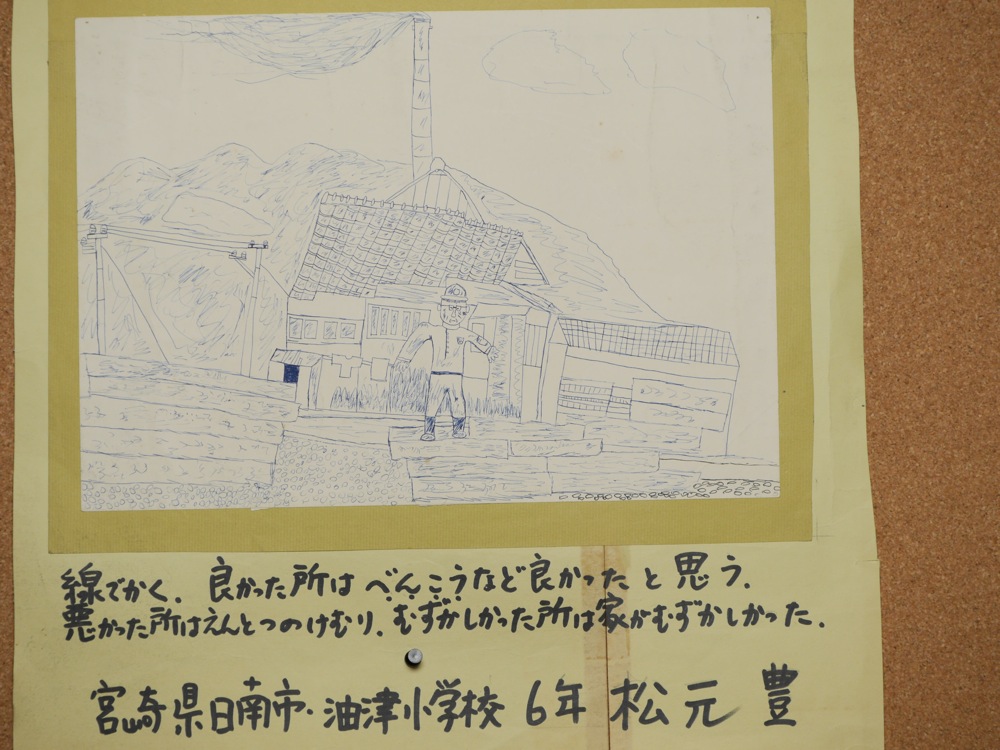 線でかく. 良かった所はべんこうなど良かったと思う.
悪かった所はえんとつのけむり. むずかしかった所は家がむずかしかった.
宮崎県日南市・油津小学校 6年 松元 豊